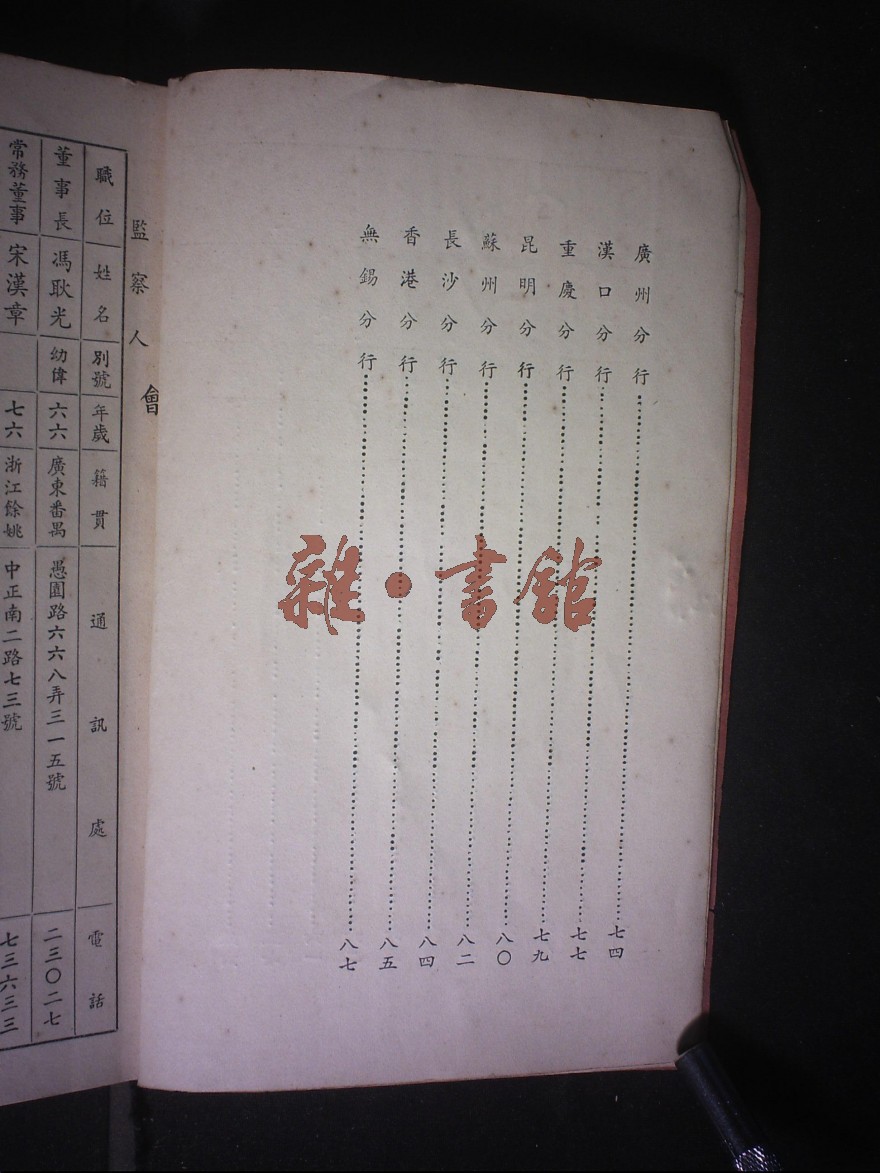 廣州分行⋯⋯七四
漢口分行⋯⋯七七
重慶分行⋯⋯七九
昆明分行⋯⋯八〇
蘇州分行⋯⋯八二
長沙分行⋯⋯八四
香港分行⋯⋯八五
無錫分行⋯⋯八七
雜·書館
監察人會
職位 姓名 別號 年歲 籍貫 通訊處 電話
董事長 馮耿光 幼偉 六六 廣東番禺 愚園路六六八弄三一五號 二三〇二七
常務董事 宋漢章 七六 浙江餘姚 中正南二路七三號 七三六三三